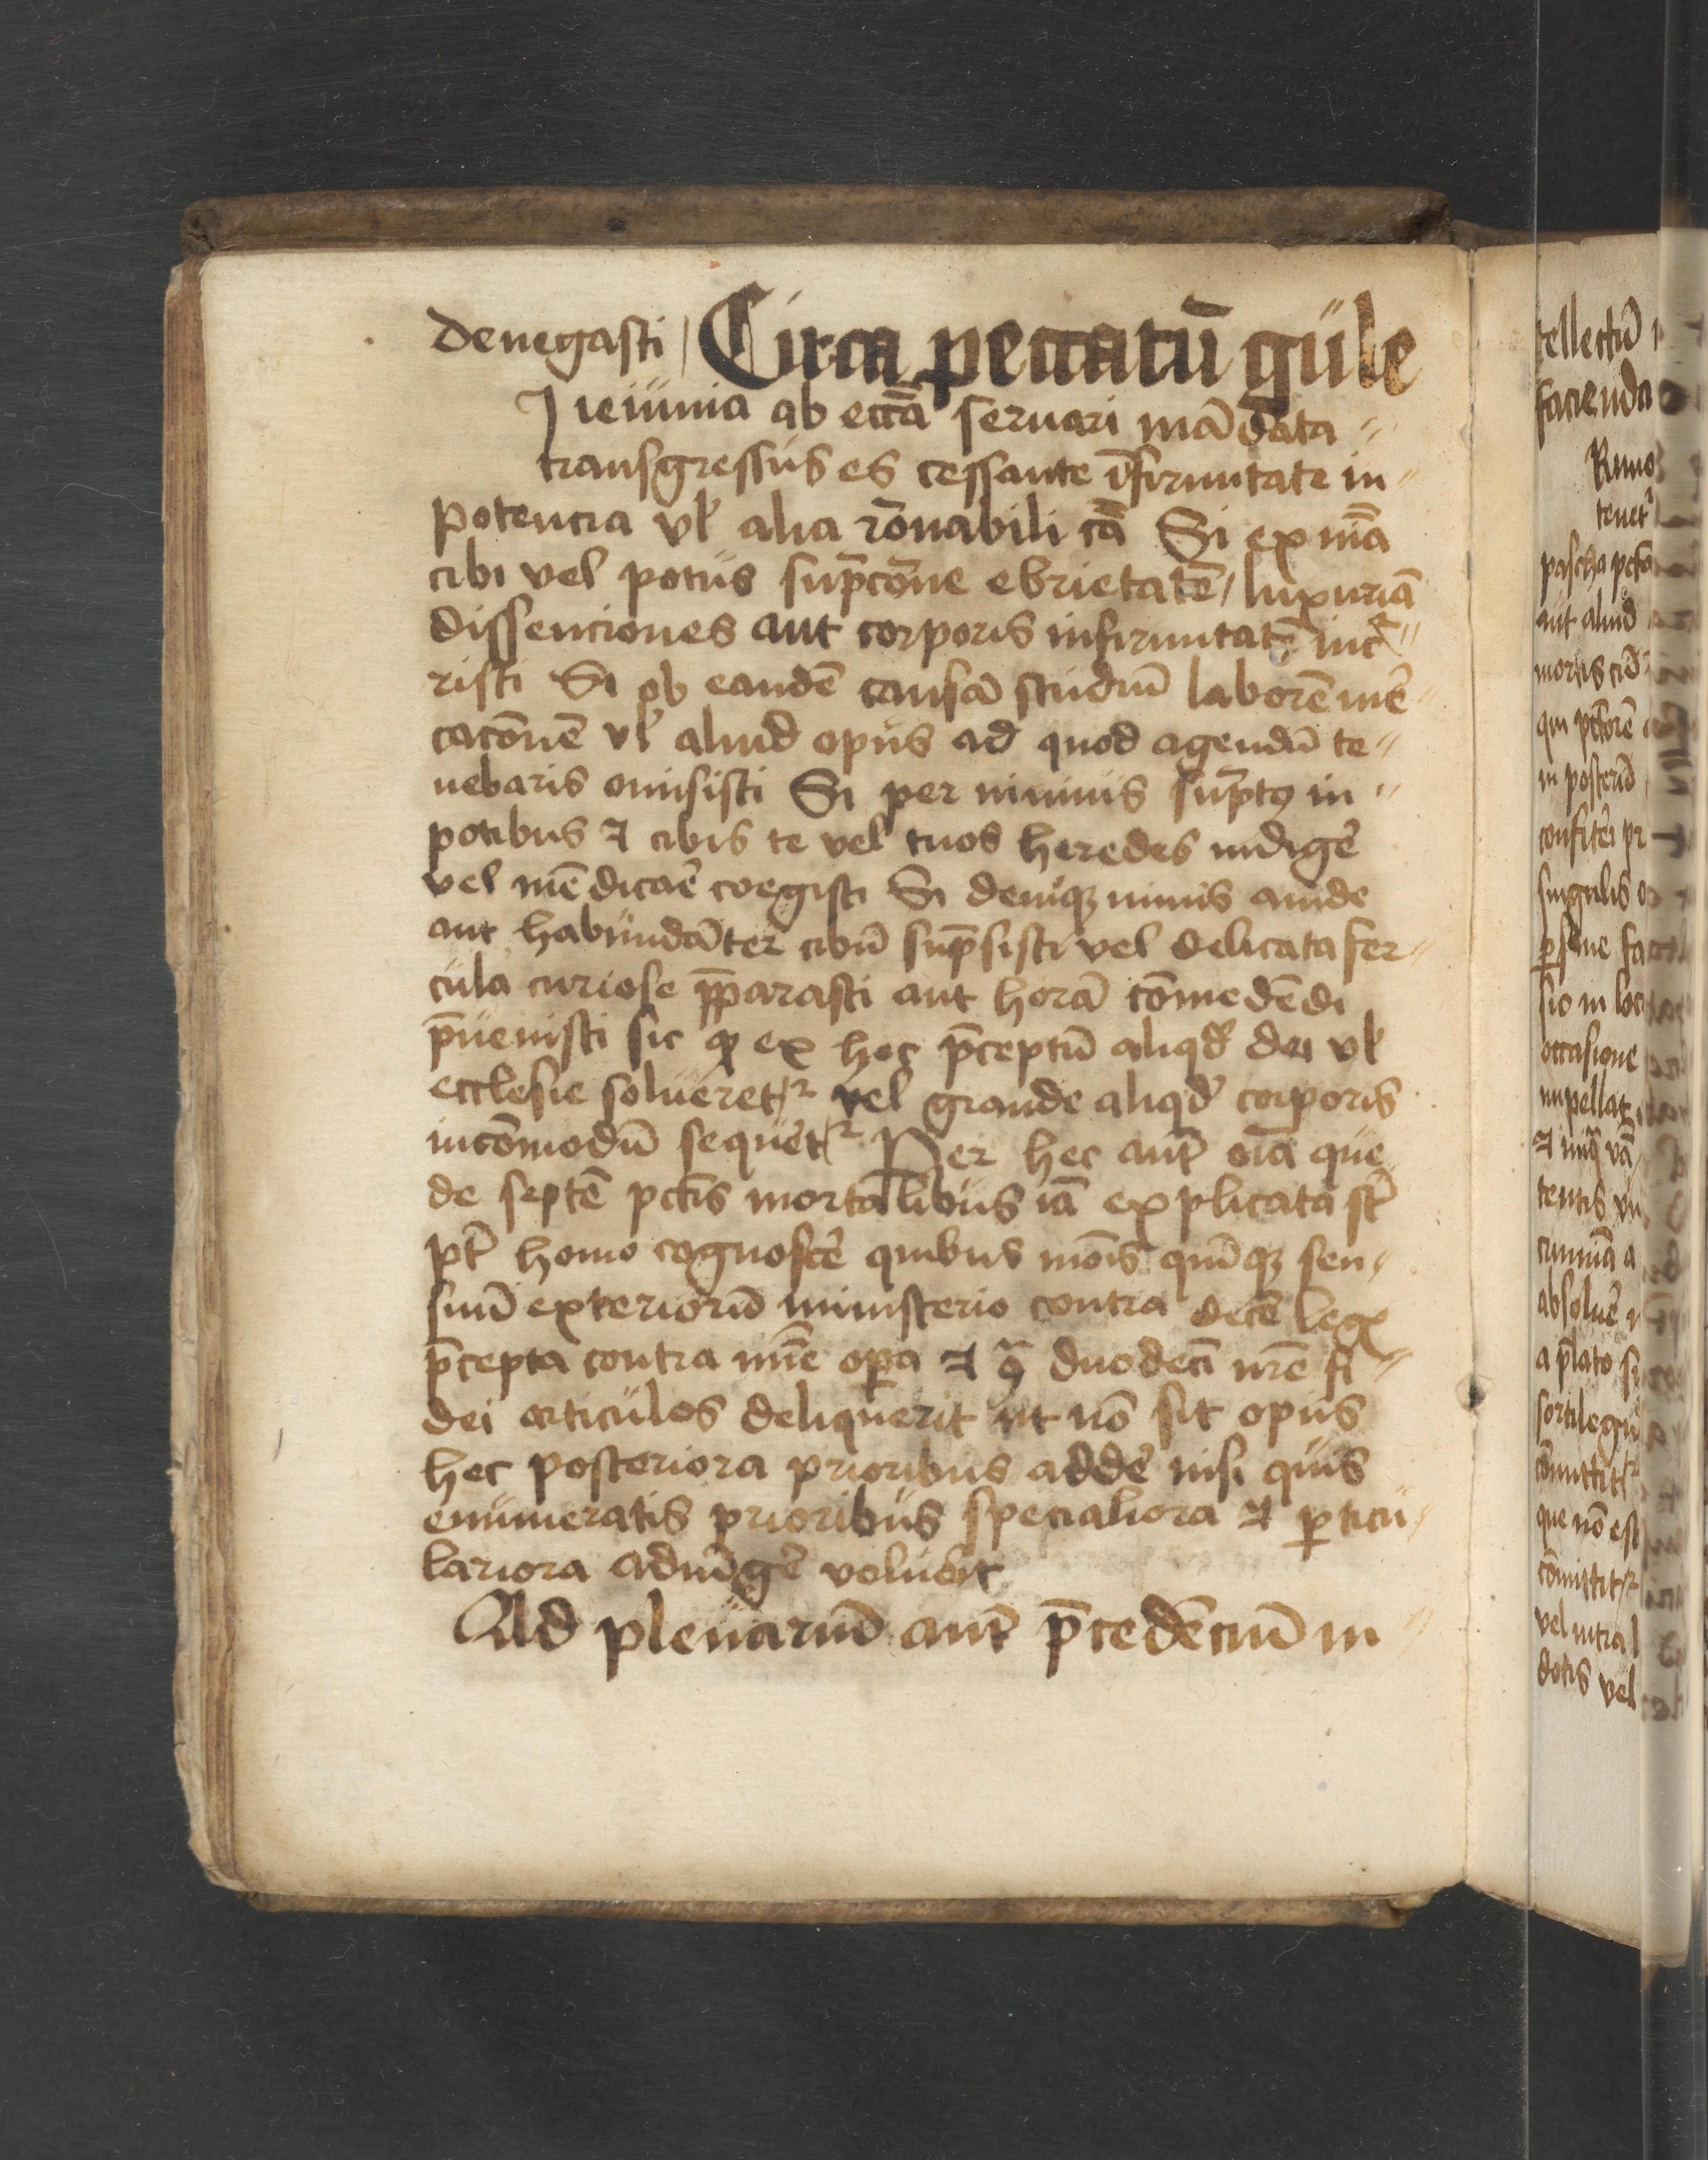 denegasti / Circa peccatū gule
I ieiunia ab eccā seruari mādata
transgressus es cessante īfirmitate in
potencia vł alia rōnabili cā Si ex nīa
cibi vel potus sūpcōne ebrietatē / luxuriā
dissenciones aut corporis infirmitatē incͬ
risti Si ob eandē causā studiū laborē
cacōnē vł aliud opus ad quod agendū te
nebaris omisisti Si per nimiis sūptꝰ in
potibus ⁊ cibis te vel tuos heredes indigē
vel mēdicaē coegisti Si deniqꝫ nimis auide
aut habundāter cibū sūpsisti vel delicata fer
cula curiose p̄parasti aut horā cōmedēdi
p̄uenisti sic ꝙ ex hoc p̄ceptū aliqd̕ dei vł
ecclesie solueret᷑ vel grande aliqd̕ corporis
incōmodū sequet᷑ Per hec aut̄ oīa que
de septē pctīs mortalibus iā explicata st̄
pt̄ homo cognoscē quibus mōis quīqꝫ sen
suū exteriorū ministerio contra decē legꝭ
p̄cepta contra mīe oꝑa ⁊ ꝯ̄ duodecī nr̄e fi
dei articulos deliquerit ut nō sit opus
hec posteriora prioribus addē nisi quis
enumeratis prioribus specialiora ⁊ ꝑticu
lariora adiūgē voluerit
Ad plenariū aut̄ p̄cedēciū in
tellectū
facienda
tenet᷑
pascha
aut aliud
mortis
in posterū
confitēi
singulis
sic in loc
occasione
impellat
tentis
absoluē
a p̄lato
sortilegiū
cōmittit᷑
que nō est
cōmittit᷑
vel intra
dotis vel